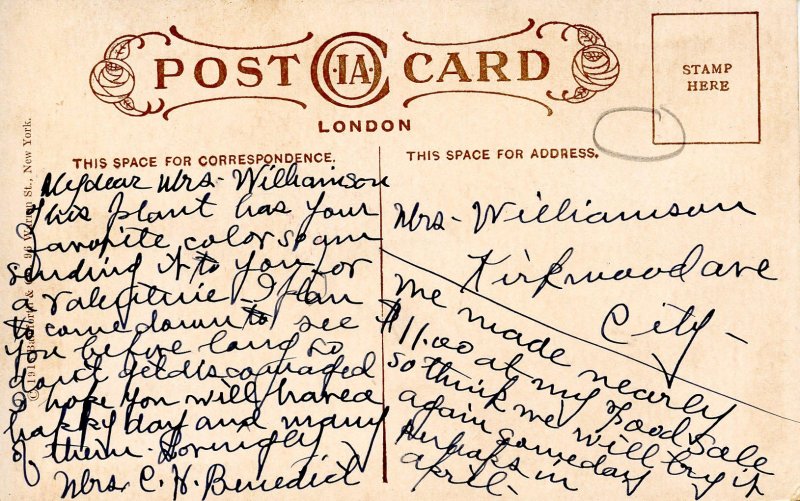 POST CARD
IA
LONDON
STAMP
HERE
THIS SPACE FOR CORRESPONDENCE.
THIS SPACE FOR ADDRESS.
My dear Mrs. Williamson
This plant has your
favorite color so am
sending it to you for
a valentine - I plan
to come down to see
you before long so
don't get discouraged
I hope you will have a
happy day and many
of them. Lovingly
Mrs. C. H. Benedict
Mrs. Williamson
Kirkwood ave
City -
We made nearly
$11.00 at my food sale
so think we will try it
again someday
perhaps in
april -
St., New York.